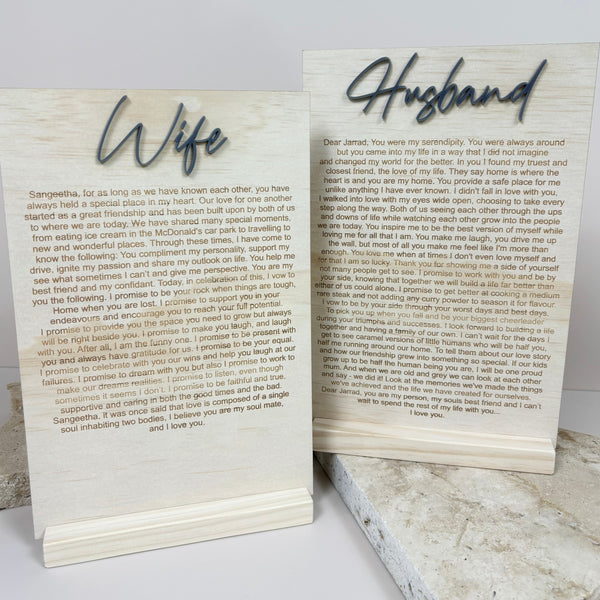 Wife
Sangeetha, for as long as we have known each other, you have
always held a special place in my heart. Our love for one another
started as a great friendship and has been built upon by both of us
to where we are today. We have shared many special moments,
from eating ice cream in the McDonald's car park to travelling to
new and wonderful places. Through these times, I have come to
know the following: You compliment my personality, support my
drive, ignite my passion and share my outlook on life. You help me
see what sometimes I can't and give me perspective. You are my
best friend and my confidant. Today, in celebration of this, I vow to
you the following. I promise to be your rock when things are tough,
Home when you are lost. I promise to support you in your
endeavours and encourage you to reach your full potential.
I promise to provide you the space you need to grow but always
will be right beside you. I promise to make you laugh, and laugh
with you. After all, I am the funny one. I promise to be present with
you and always have gratitude for us. I promise to be your equal.
I promise to celebrate with you our wins and help you laugh at our
failures. I promise to dream with you but also I promise to work to
make our dreams realities. I promise to listen, even though
sometimes it seems I don't. I promise to be faithful and true,
supportive and caring in both the good times and the bad.
Sangeetha, It was once said that love is composed of a single
soul inhabiting two bodies. I believe you are my soul mate,
and I love you.
Husband
Dear Jarrad, You were my serendipity. You were always around
but you came into my life in a way that I did not imagine
and changed my world for the better. In you I found my truest and
closest friend, the love of my life. They say home is where the
heart is and you are my home. You provide a safe place for me
unlike anything I have ever known. I didn't fall in love with you,
I walked into love with my eyes wide open, choosing to take every
step along the way. Both of us seeing each other through the ups
and downs of life while watching each other grow into the people
we are today. You inspire me to be the best version of myself while
loving me for all that I am. You make me laugh, you drive me up
the wall, but most of all you make me feel like I'm more than
enough. You love me when at times I don't even love myself and
for that I am so lucky. Thank you for showing me a side of yourself
not many people get to see. I promise to work with you and be by
your side, knowing that together we will build a life far better than
either of us could alone. I promise to get better at cooking a medium
rare steak and not adding any curry powder to season it for flavour.
I vow to be by your side through your worst days and best days.
To pick you up when you fall and be your biggest cheerleader
during your triumphs and successes. I look forward to building a life
together and having a family of our own. I can't wait for the days I
get to see caramel versions of little humans who will be half you,
half me running around our home. To tell them about our love story
and how our friendship grew into something so special. If our kids
grow up to be half the human being you are, I will be one proud
mum. And when we are old and grey we can look at each other
and say - we did it! Look at the memories we've made the things
we've achieved and the life we have created for ourselves.
Dear Jarrad, you are my person, my souls best friend and I can't
wait to spend the rest of my life with you...
I love you.